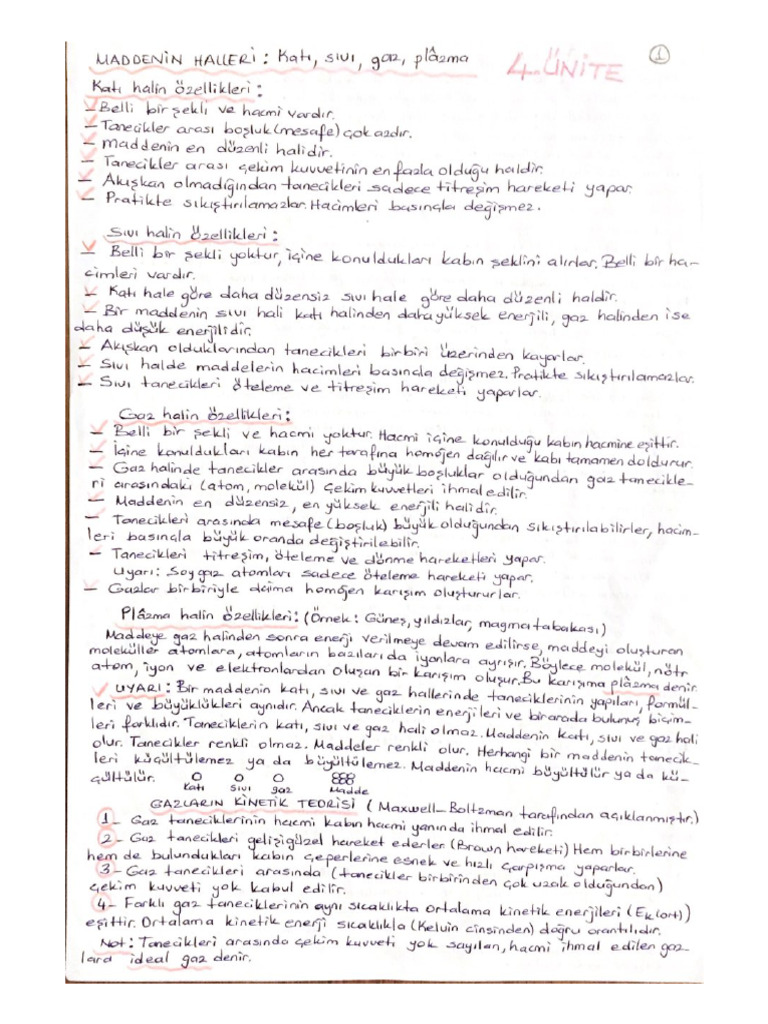 MADDENİN HALLERİ : Katı, sıvı, gaz, plâzma
4. ÜNİTE
1
Katı halin özellikleri :
– Belli bir şekli ve hacmi vardır.
– Tanecikler arası boşluk (mesafe) çok azdır.
– Maddenin en düzenli halidir.
– Tanecikler arası çekim kuvvetinin en fazla olduğu haldir.
– Akışkan olmadığından tanecikleri sadece titreşim hareketi yapar.
– Pratikte sıkıştırılamazlar. Hacimleri basınçla değişmez.
Sıvı halin özellikleri :
– Belli bir şekli yoktur, içine konuldukları kabın şeklini alırlar. Belli bir ha-
cimleri vardır.
– Katı hale göre daha düzensiz sıvı hale göre daha düzenli haldir.
– Bir maddenin sıvı hali katı halinden daha yüksek enerjili, gaz halinden ise
daha düşük enerjilidir.
– Akışkan olduklarından tanecikleri birbiri üzerinden kayarlar.
– Sıvı halde maddelerin hacimleri basınçla değişmez. Pratikte sıkıştırılamazlar.
– Sıvı tanecikleri öteleme ve titreşim hareketi yaparlar.
Gaz halin özellikleri :
– Belli bir şekli ve hacmi yoktur. Hacmi içine konulduğu kabın hacmine eşittir.
– İçine konuldukları kabın her tarafına homojen dağılır ve kabı tamamen doldurur.
– Gaz halinde tanecikler arasında büyük boşluklar olduğundan gaz tanecikle-
ri arasındaki (atom, molekül) çekim kuvvetleri ihmal edilir.
– Maddenin en düzensiz, en yüksek enerjili halidir.
– Tanecikleri arasında mesafe (boşluk) büyük olduğundan sıkıştırılabilirler, hacim-
leri basınçla büyük oranda değiştirilebilir.
– Tanecikleri titreşim, öteleme ve dönme hareketleri yapar.
Uyarı : Soygaz atomları sadece öteleme hareketi yapar.
– Gazlar birbiriyle daima homojen karışım oluştururlar.
Plâzma halin özellikleri : (Örnek : Güneş, yıldızlar, magma tabakası)
Maddeye gaz halinden sonra enerji verilmeye devam edilirse, maddeyi oluşturan
moleküller atomlara, atomların bazıları da iyonlara ayrışır. Böylece molekül, nötr
atom, iyon ve elektronlardan oluşan bir karışım oluşur. Bu karışıma plâzma denir.
UYARI : Bir maddenin katı, sıvı ve gaz hallerinde taneciklerinin yapıları, formül-
leri ve büyüklükleri aynıdır. Ancak taneciklerin enerjileri ve birarada bulunuş biçim-
leri farklıdır. Taneciklerin katı, sıvı ve gaz hali olmaz. Maddenin katı, sıvı ve gaz hali
olur. Tanecikler renkli olmaz. Maddeler renkli olur. Herhangi bir maddenin tanecik-
leri küçültülemez ya da büyültülemez. Maddenin hacmi büyültülür ya da kü-
çültülür.
Katı Sıvı gaz Madde
GAZLARIN KİNETİK TEORİSİ ( Maxwell–Boltzman tarafından açıklanmıştır.)
1 – Gaz taneciklerinin hacmi kabın hacmi yanında ihmal edilir.
2 – Gaz tanecikleri gelişigüzel hareket ederler (Brown hareketi) Hem birbirlerine
hem de bulundukları kabın çeperlerine esnek ve hızlı çarpışma yaparlar.
3 – Gaz tanecikleri arasında (tanecikler birbirinden çok uzak olduğundan)
çekim kuvveti yok kabul edilir.
4 – Farklı gaz taneciklerinin aynı sıcaklıkta ortalama kinetik enerjileri (Ek(ort))
eşittir. Ortalama kinetik enerji sıcaklıkla (Kelvin cinsinden) doğru orantılıdır.
Not : Tanecikleri arasında çekim kuvveti yok sayılan, hacmi ihmal edilen gaz
lara ideal gaz denir.